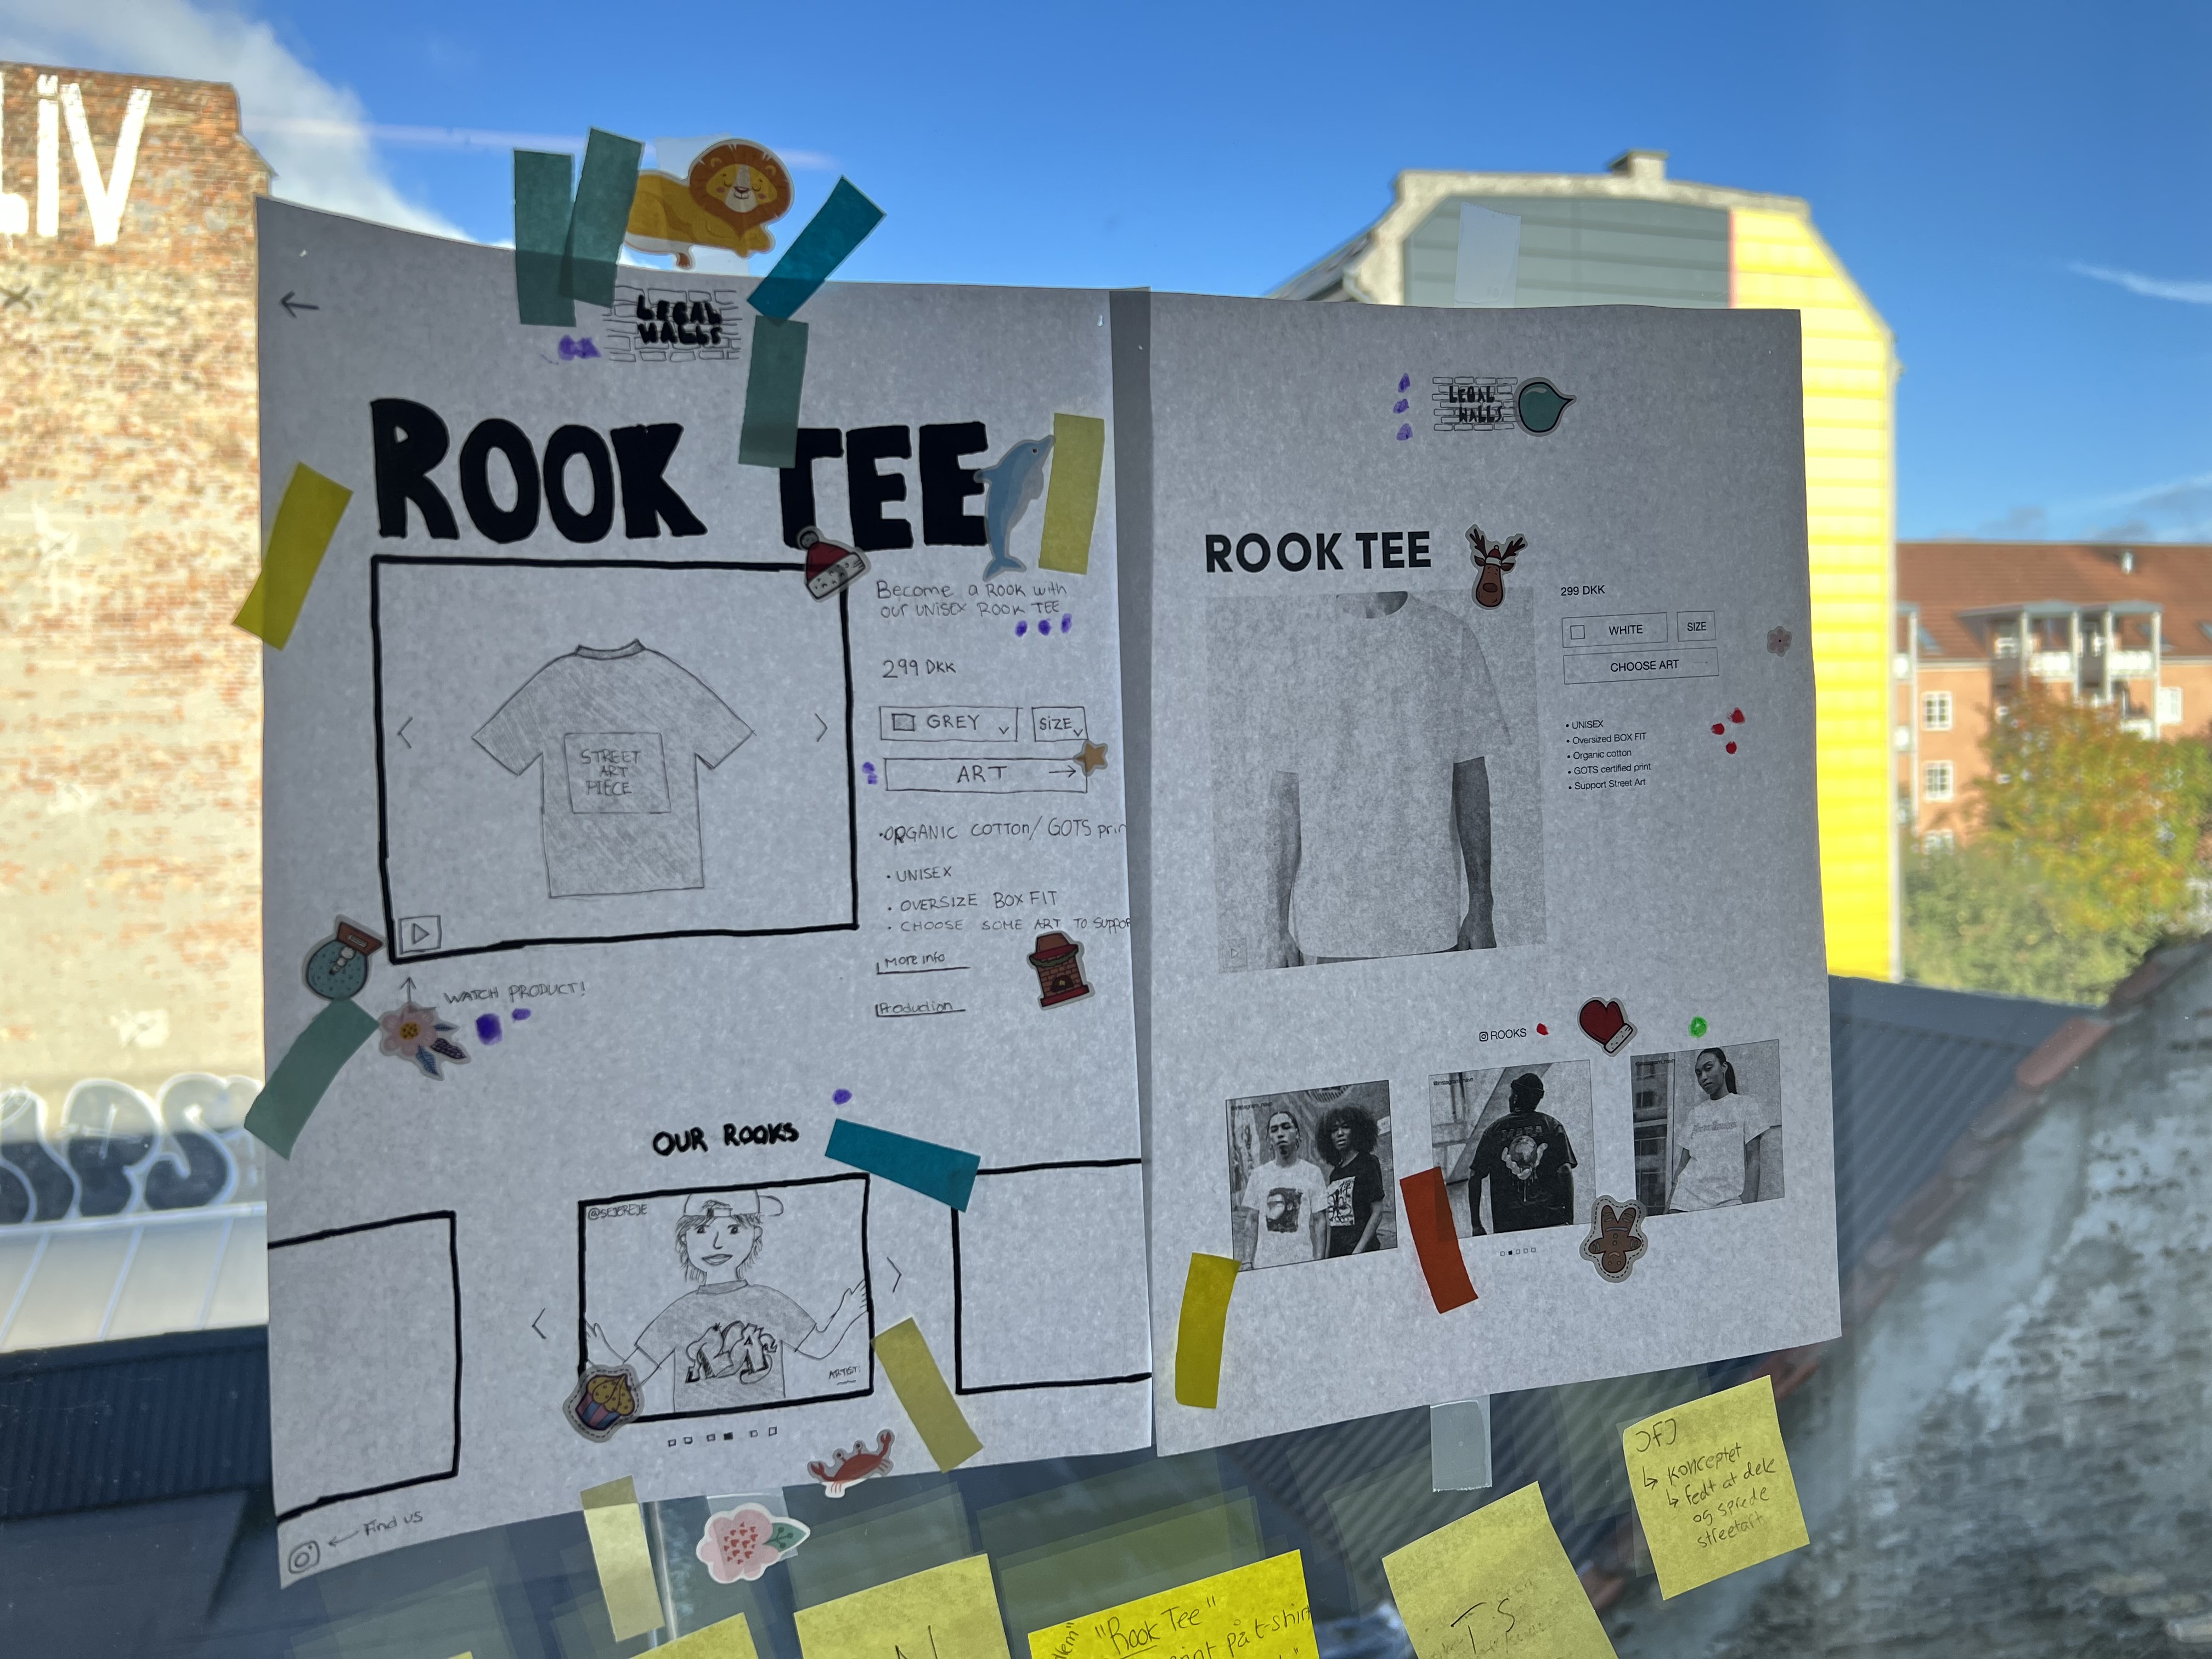 LiV
LEGAL
WALLS
ROOK TEE
Become a ROOK with
our UNISEX ROOK TEE
299 DKK
GREY
SIZE
ART
STREET
ART
PIECE
•ORGANIC COTTON/ GOTS prin
• UNISEX
• OVERSIZE BOX FIT
• CHOOSE SOME ART TO SUPPOR
More info
Production
WATCH PRODUCT!
OUR ROOKS
@SEJEREJE
ARTIST:
Find us
LEGAL
WALLS
ROOK TEE
299 DKK
WHITE
SIZE
CHOOSE ART
• UNISEX
• Oversized BOX FIT
• Organic cotton
• GOTS certified print
• Support Street Art
ROOKS
JFJ
↳ konceptet
↳ fedt at dele
og sprede
streetart
"Rook Tee"
på t-shirt